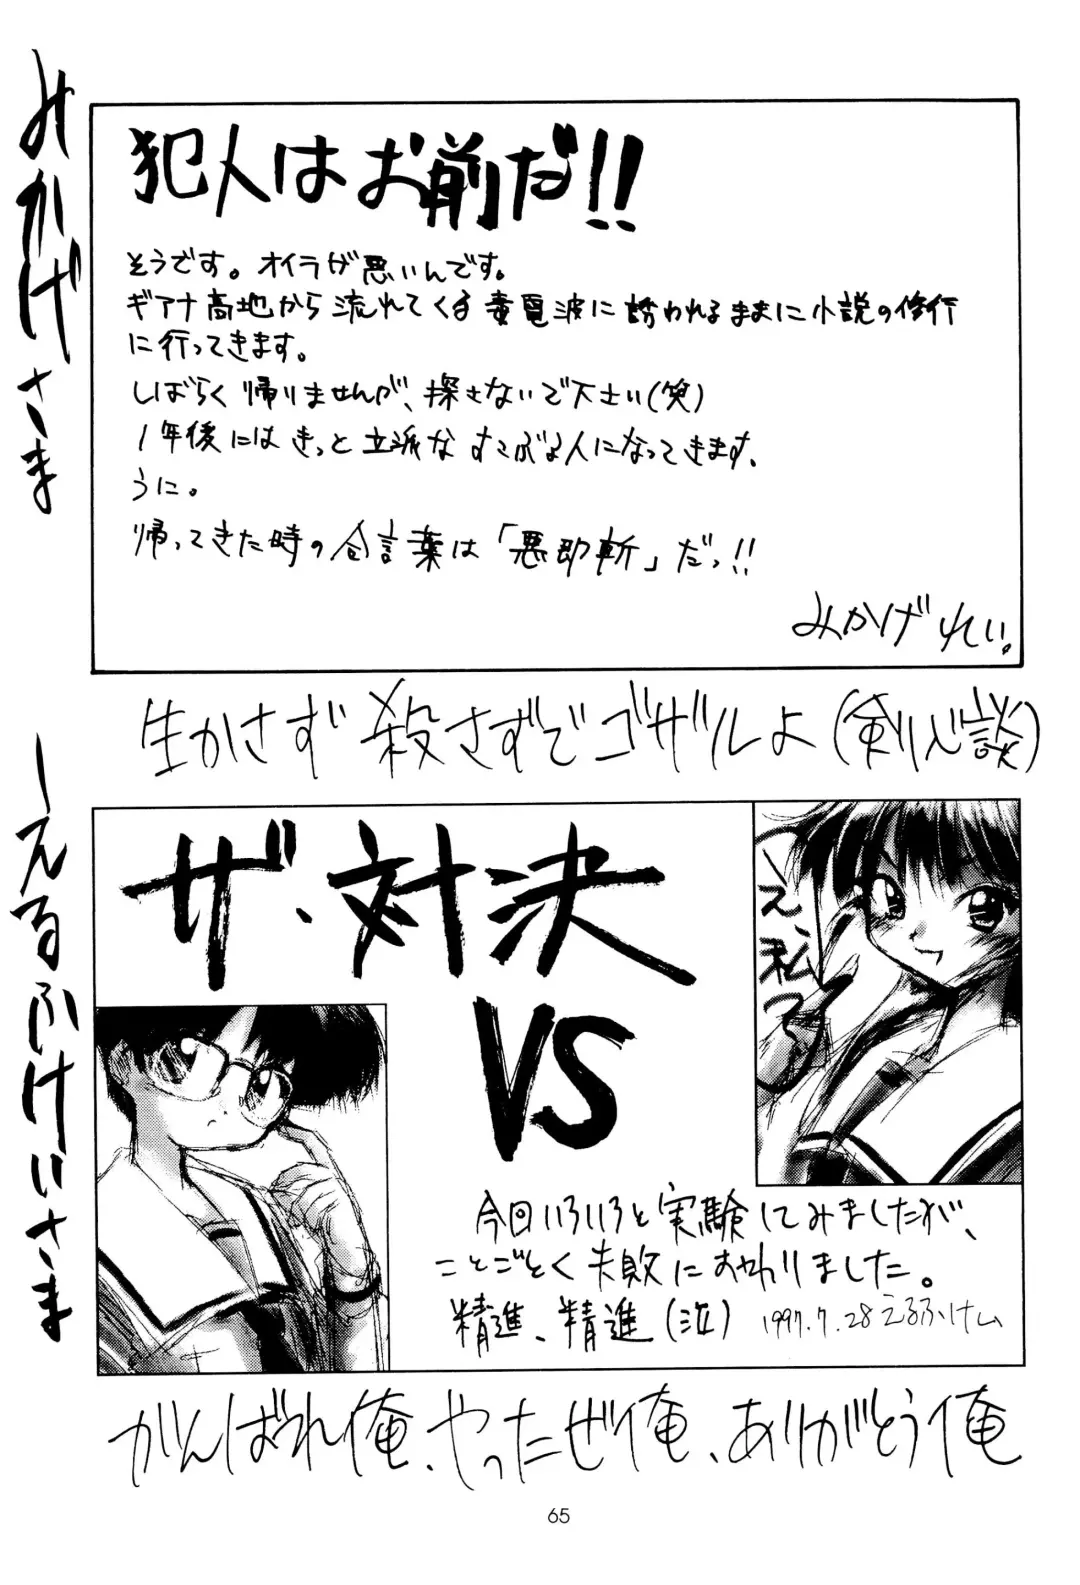 みかげさま
犯人はお前だ!!
そうです。オイラが悪いんです。
ギアナ高地から流れてくる毒電波に誘われるままに小説の修行
に行ってきます。
しばらく帰りませんが、探さないで下さい(笑)
1年後にはきっと立派なすこぶる人になってきます、
うに。
帰ってきた時の合言葉は「悪即斬」だっ!!
みかげれい。
生かさず殺さずでゴザルよ(剣心談)
しえるふけいさま
ザ・対決
VS
え、私っ
今回いろいろと実験してみましたが、
ことごとく失敗におわりました。
精進、精進(泣)
1997.7.28えるふけむ
がんばれ俺、やったぜ俺、ありがとう俺
65